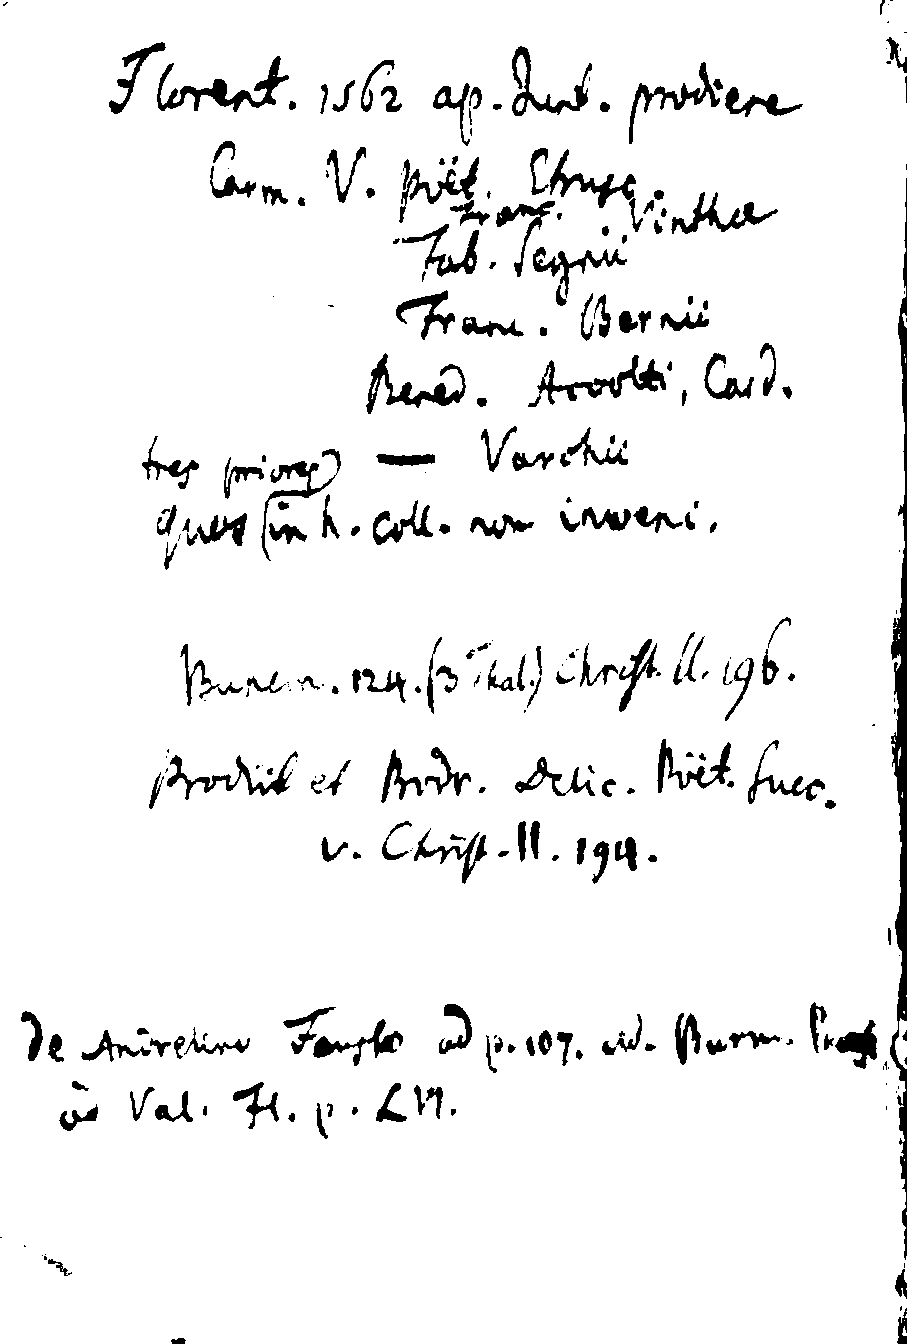 Florent. 1562 ap. Junt. prodiere
Carm. V. Poët. Etrusc.
Franc. Vinthae
Fab. Segnii
Franc. Bernii
Bened. Accolti, Card.
tres priores — Varchii
quos in h. coll. non inveni.
Bunem. 124. (3 Thal.) Christ. II. 196.
Prodiit et Brodr. Delic. Poët. Suec.
v. Christ. II. 194.
de Andrelino Fausto ad p. 107. vid. Burm. Praef
ad Val. Fl. p. LVI.